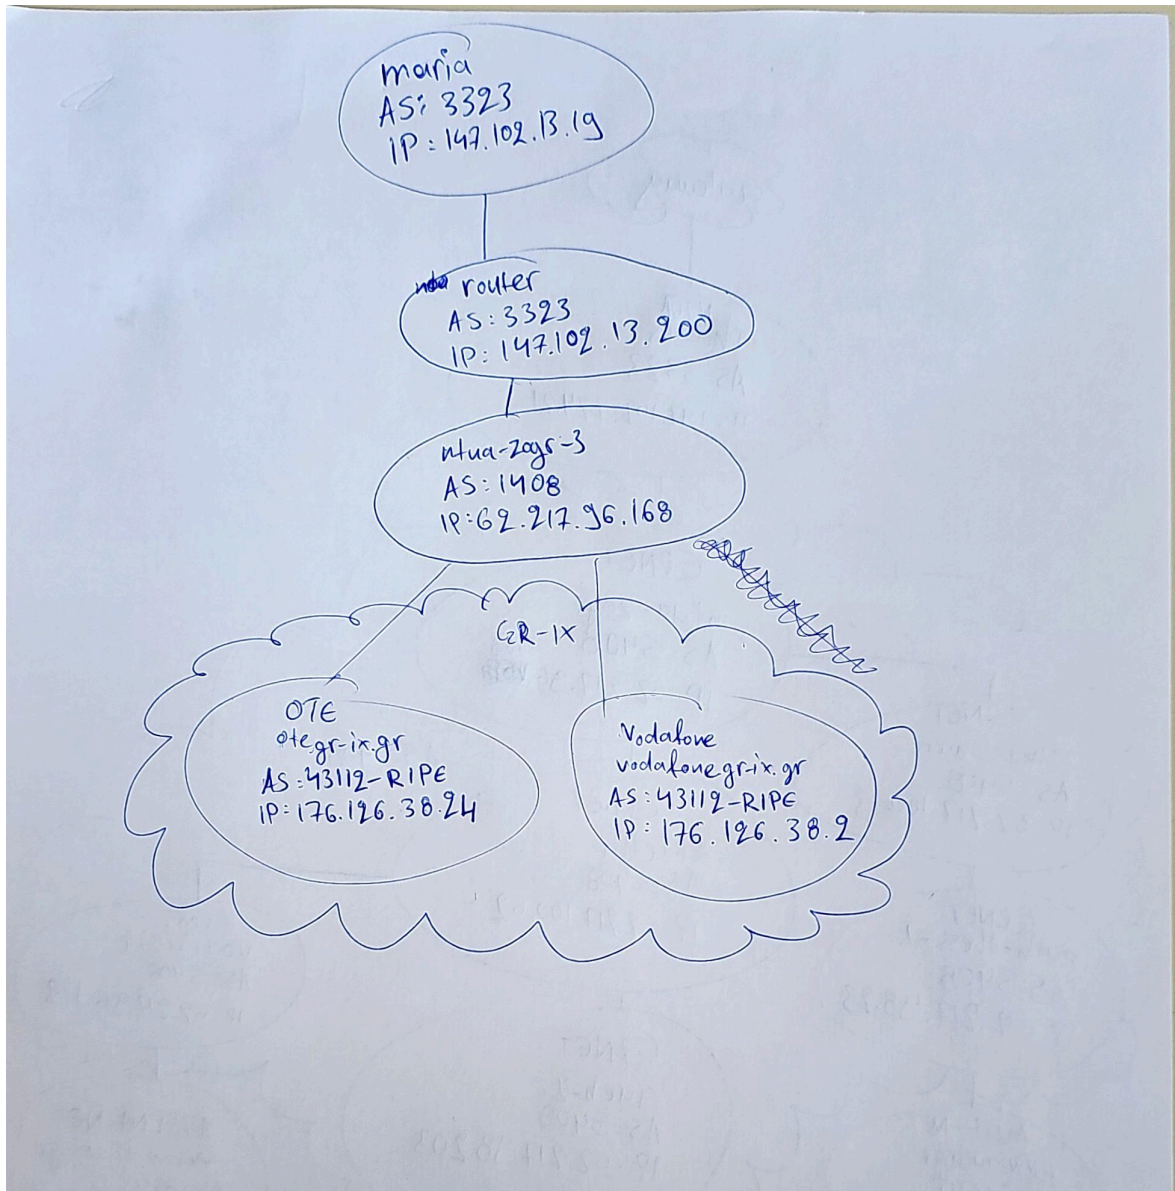 maria
AS: 3323
IP: 147.102.13.19
router
AS: 3323
IP: 147.102.13.200
ntua-zogr-3
AS: 1408
IP: 62.217.96.168
GR-IX
OTE
ote.gr-ix.gr
AS: 43112-RIPE
IP: 176.126.38.24
Vodafone
vodafone.gr-ix.gr
AS: 43112-RIPE
IP: 176.126.38.2